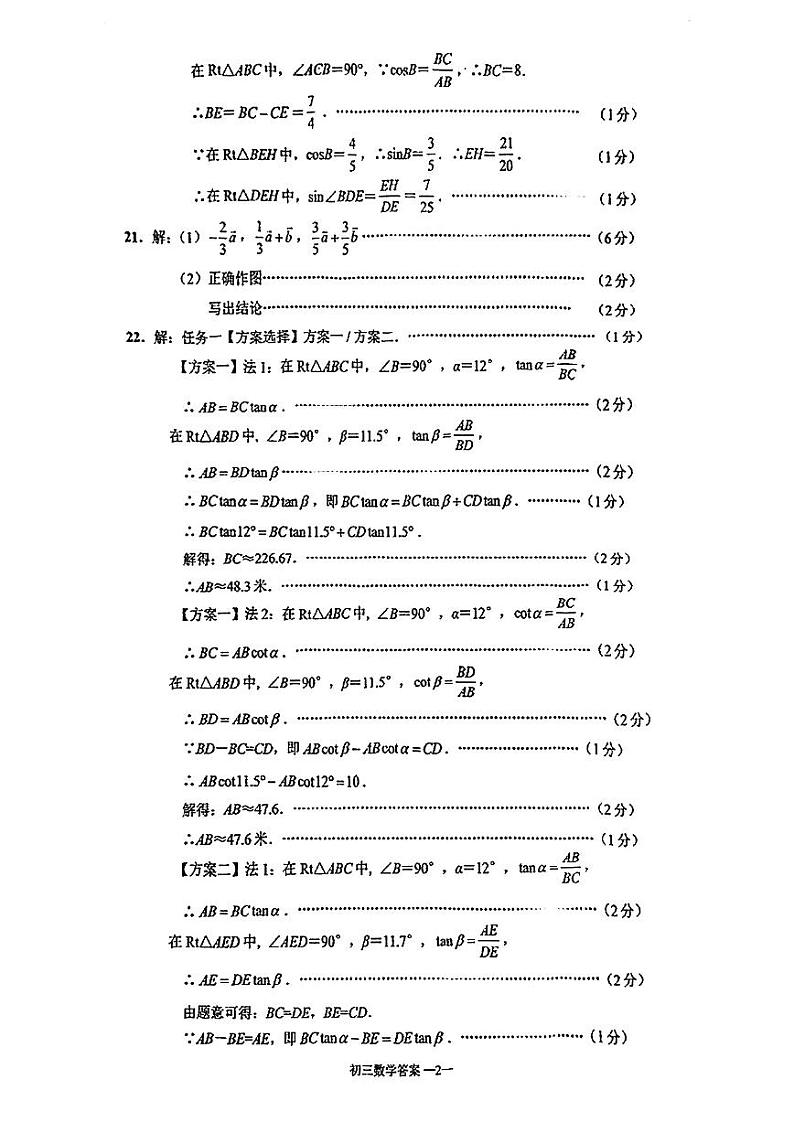 在 Rt△ABC 中，∠ACB=90°，∵cosB=BC/AB，∴BC=8.
∴BE=BC-CE=7/4. ……（1分）
∵在 Rt△BEH 中，cosB=4/5，∴sinB=3/5. ∴EH=21/20. （1分）
∴在 Rt△DEH 中，sin∠BDE=EH/DE=7/25. ……（1分）
21. 解：（1）-2/3 a⃗，1/3 a⃗+b⃗，3/5 a⃗+3/5 b⃗ ……（6分）
（2）正确作图……（2分）
写出结论……（2分）
22. 解：任务一【方案选择】方案一/方案二. ……（1分）
【方案一】法1：在 Rt△ABC 中，∠B=90°，α=12°，tanα=AB/BC，
∴AB=BCtanα. ……（2分）
在 Rt△ABD 中，∠B=90°，β=11.5°，tanβ=AB/BD，
∴AB=BDtanβ……（2分）
∴BCtanα=BDtanβ，即 BCtanα=BCtanβ+CDtanβ. ……（1分）
∴BCtan12°=BCtan11.5°+CDtan11.5°.
解得：BC≈226.67. ……（2分）
∴AB≈48.3米. ……（1分）
【方案一】法2：在 Rt△ABC 中，∠B=90°，α=12°，cotα=BC/AB，
∴BC=ABcotα. ……（2分）
在 Rt△ABD 中，∠B=90°，β=11.5°，cotβ=BD/AB，
∴BD=ABcotβ. ……（2分）
∵BD－BC=CD，即 ABcotβ-ABcotα=CD. ……（1分）
∴ABcot11.5°-ABcot12°=10.
解得：AB≈47.6. ……（2分）
∴AB≈47.6米. ……（1分）
【方案二】法1：在 Rt△ABC 中，∠B=90°，α=12°，tanα=AB/BC，
∴AB=BCtanα. ……（2分）
在 Rt△AED 中，∠AED=90°，β=11.7°，tanβ=AE/DE，
∴AE=DEtanβ. ……（2分）
由题意可得：BC=DE，BE=CD.
∵AB－BE=AE，即 BCtanα-BE=DEtanβ. ……（1分）
初三数学答案 —2—